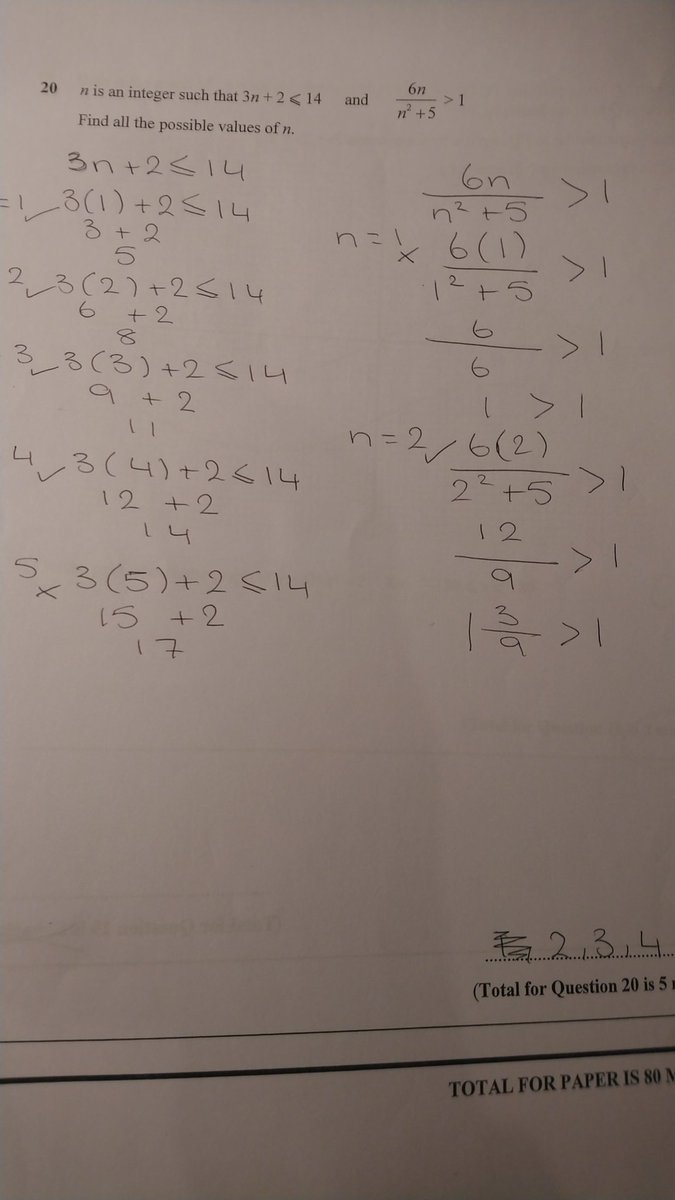 20 n is an integer such that 3n + 2 ⩽ 14 and 6n/(n² + 5) > 1
Find all the possible values of n.
3n + 2 ≤ 14
=1 ✓ 3(1) + 2 ≤ 14
3 + 2
5
2 ✓ 3(2) + 2 ≤ 14
6 + 2
8
3 ✓ 3(3) + 2 ≤ 14
9 + 2
11
4 ✓ 3(4) + 2 ≤ 14
12 + 2
14
5 × 3(5) + 2 ≤ 14
15 + 2
17
6n/(n² + 5) > 1
n = 1 × 6(1)/(1² + 5) > 1
6/6 > 1
1 > 1
n = 2 ✓ 6(2)/(2² + 5) > 1
12/9 > 1
1 3/9 > 1
2, 3, 4
(Total for Question 20 is 5
TOTAL FOR PAPER IS 80 M